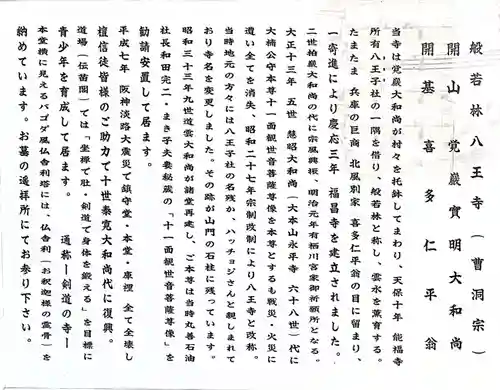 般若林八王寺（曹洞宗）
開山　覚巖實明大和尚
開基　喜多仁平翁
当寺は覚巖大和尚が村々を托鉢してまわり、天保十年　能福寺
所有八王子社の一隅を借り、般若林と称し、雲水を薫育する。
たまたま　兵庫の巨商　北風別家　喜多仁平翁の目に留まり、
一寄進により慶応三年　福昌寺を建立されました。
二世柏巖大和尚の代に宗風興振、明治元年有栖川宮家御祈願所となる。
大正十三年　五世　慧昭大和尚（大本山永平寺　六十八世）代に
大楠公守本尊十一面観世音菩薩尊像を本尊とするも戦災・火災に
遭い全てを消失、昭和二十七年宗制改制により八王寺と改称。
当時地元の方々には八王子社の名残か、ハッチョジさんと親しまれて
おり寺名を変更しました。その跡が山門の石柱に残っています。
昭和三十三年九世道雲大和尚が諸堂再建し、ご本尊は当時丸善石油
社長和田完二・まき子夫妻秘蔵の「十一面観世音菩薩尊像」を
勧請安置して居ます。
平成七年　阪神淡路大震災で鎮守堂・本堂・庫裡　全て全壊し
檀信徒皆様のご助力で十世泰寛大和尚代に復興。
道場（伝苗閣）では「坐禅で肚・剣道で身体を鍛える」を目標に
青少年を育成して居ます。　通称ー剣道の寺ー
本堂横に見えるパゴダ風仏舎利塔には、仏舎利（お釈迦様の霊骨）を
納めています。お墓の遥拝所にてお参り下さい。